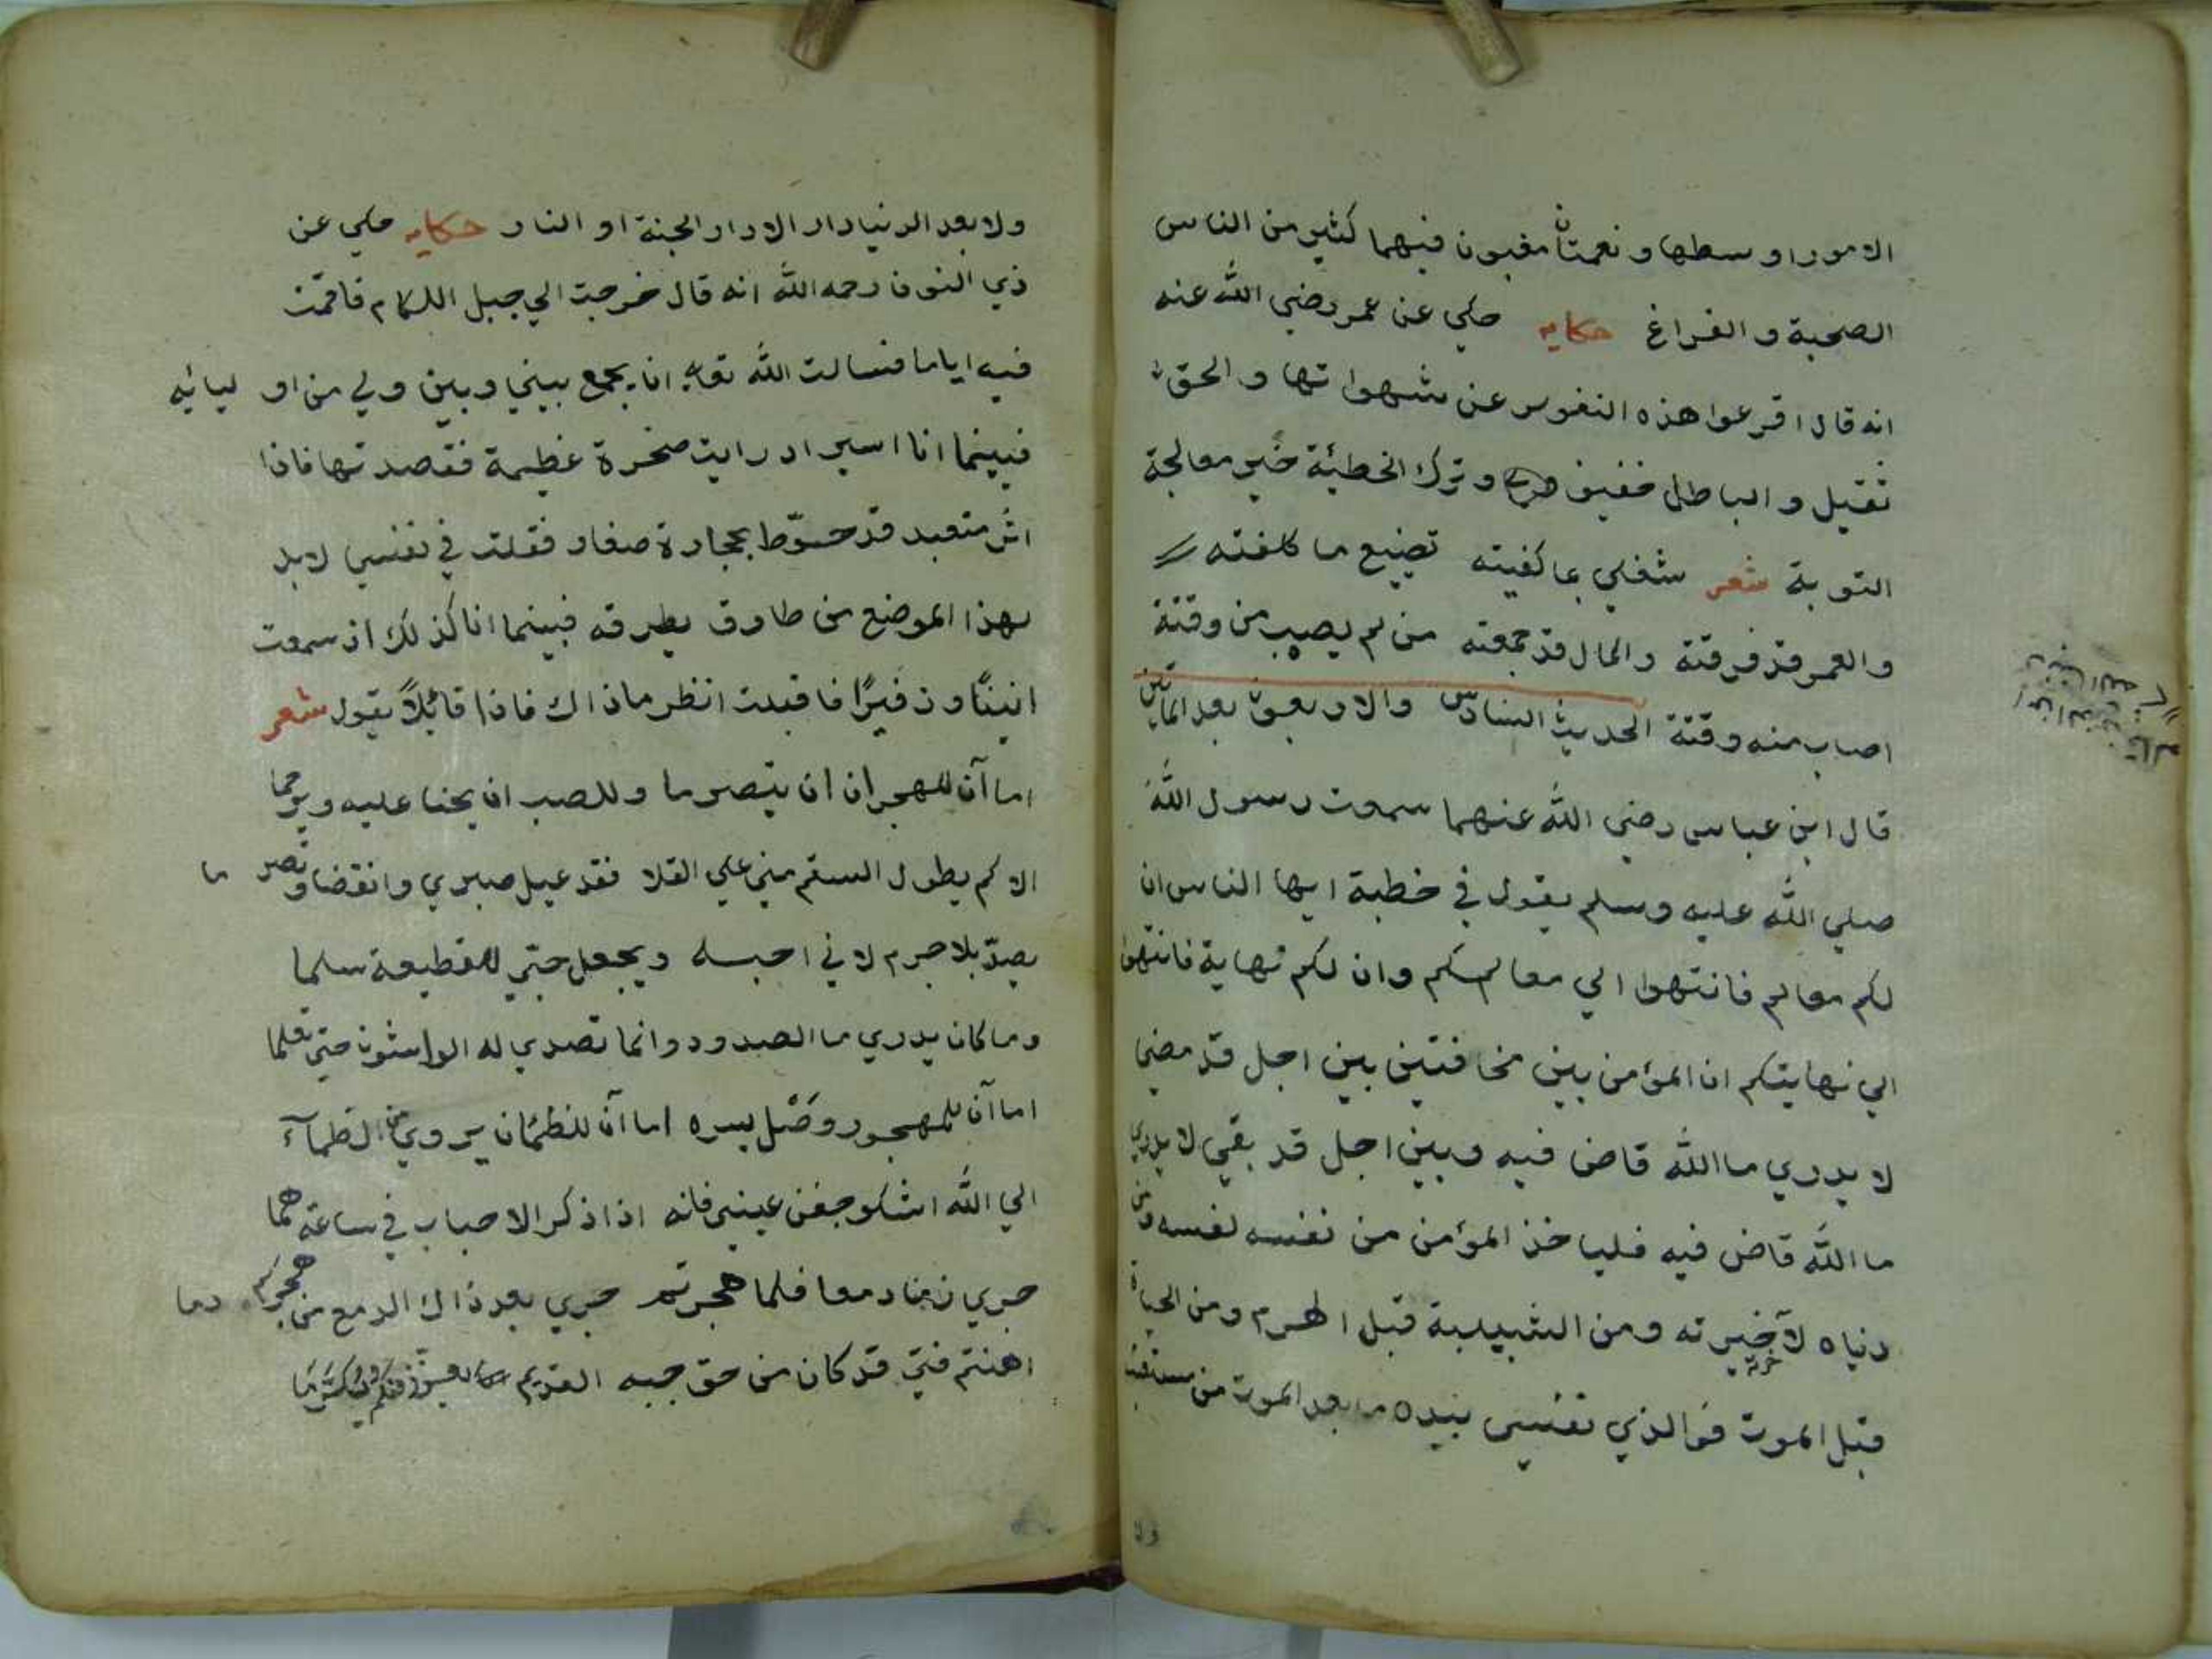 الامور اوسطها و نعمتان مغبون فيهما كثير من الناس
الصحبة و الفراغ حكايه حكي عن عمر رضي الله عنه
انه قال اقرعوا هذه النفوس عن شهواتها و الحق
ثقيل و الباطل خفيف و ترك الخطيئة خير معالجة
التوبة شعر شغلي بما كفيته تضييع ما كلفته
و العمر قد فرقته و المال قد جمعته من لم يصيب من وقتة
اصاب منه وقتة الحديث السادس و الاربعون بعد المايتين
قال ابن عباس رضي الله عنهما سمعت رسول الله
صلي الله عليه و سلم يقول في خطبة ايها الناس ان
لكم معالم فانتهوا الي معالمكم و ان لكم نهاية فانتهوا
الي نهايتكم ان المؤمن بين مخافتين بين اجل قد مضي
لا يدري ما الله قاض فيه و بين اجل قد بقي لا يدري
ما الله قاض فيه فلياخذ المؤمن من نفسه لنفسه و من
دنياه لآخيرته و من الشبيبة قبل الهرم و من الحياة
قبل الموت فوالذي نفسي بيده ما بعد الموت من مستعتب
ولا
ولا بعد الدنيا دار الا دار الجنة او النار حكايه حكي عن
ذي النون رحمه الله انه قال خرجت الي جبل اللكام فاقمت
فيه اياما فسالت الله تعالي ان يجمع بيني و بين ولي من اوليائيه
فبينما انا اسير اد رايت صخرة عظيمة فقصدتها فاذا
اثر متعبد قد حوّط بحجارة صغار فقلت في نفسي لابد
لهذا الموضع من طارق يطرقه فبينما انا كذلك اذ سمعت
انينًا و زفيرًا فاقبلت انظر ماذاك فاذا قائلاً يقول شعر
اما آن للهجران ان يتصرما و للصب ان يحنا عليه و يرحما
الا كم يطول السقم مني علي القلا فقد عيل صبري و انقضا و تصرما
يصدّ بلا جرم لاني احبه و يجعل حبّي للقطيعة سلما
و ما كان يدري ما الصدود و انما تصدي له الواشون حتي تعلما
اما آن للمهجور وصْل يسره اما آن للظمئان يروي من الظمآء
الي الله اشكو جفن عيني فانه اذا ذكر الاحباب في ساعة هما
جري زمنا دمعا فلما هجرتم جري بعد ذاك الدمع من هجركم دما
اهنتم فتي قد كان من حق حبه القديم